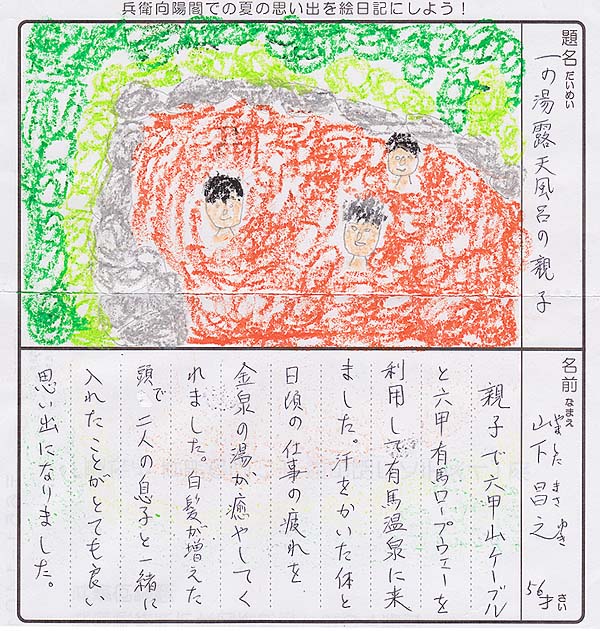 兵衛向陽閣での夏の思い出を絵日記にしよう！
題名 だいめい
一の湯露天風呂の親子
名前 なまえ
山下昌之 やました まさゆき
56才 さい
親子で六甲山ケーブル
と六甲有馬ロープウェーを
利用して有馬温泉に来
ました。汗をかいた体と
日頃の仕事の疲れを
金泉の湯が癒やしてく
れました。白髪が増えた
頭で二人の息子と一緒に
入れたことがとても良い
思い出になりました。